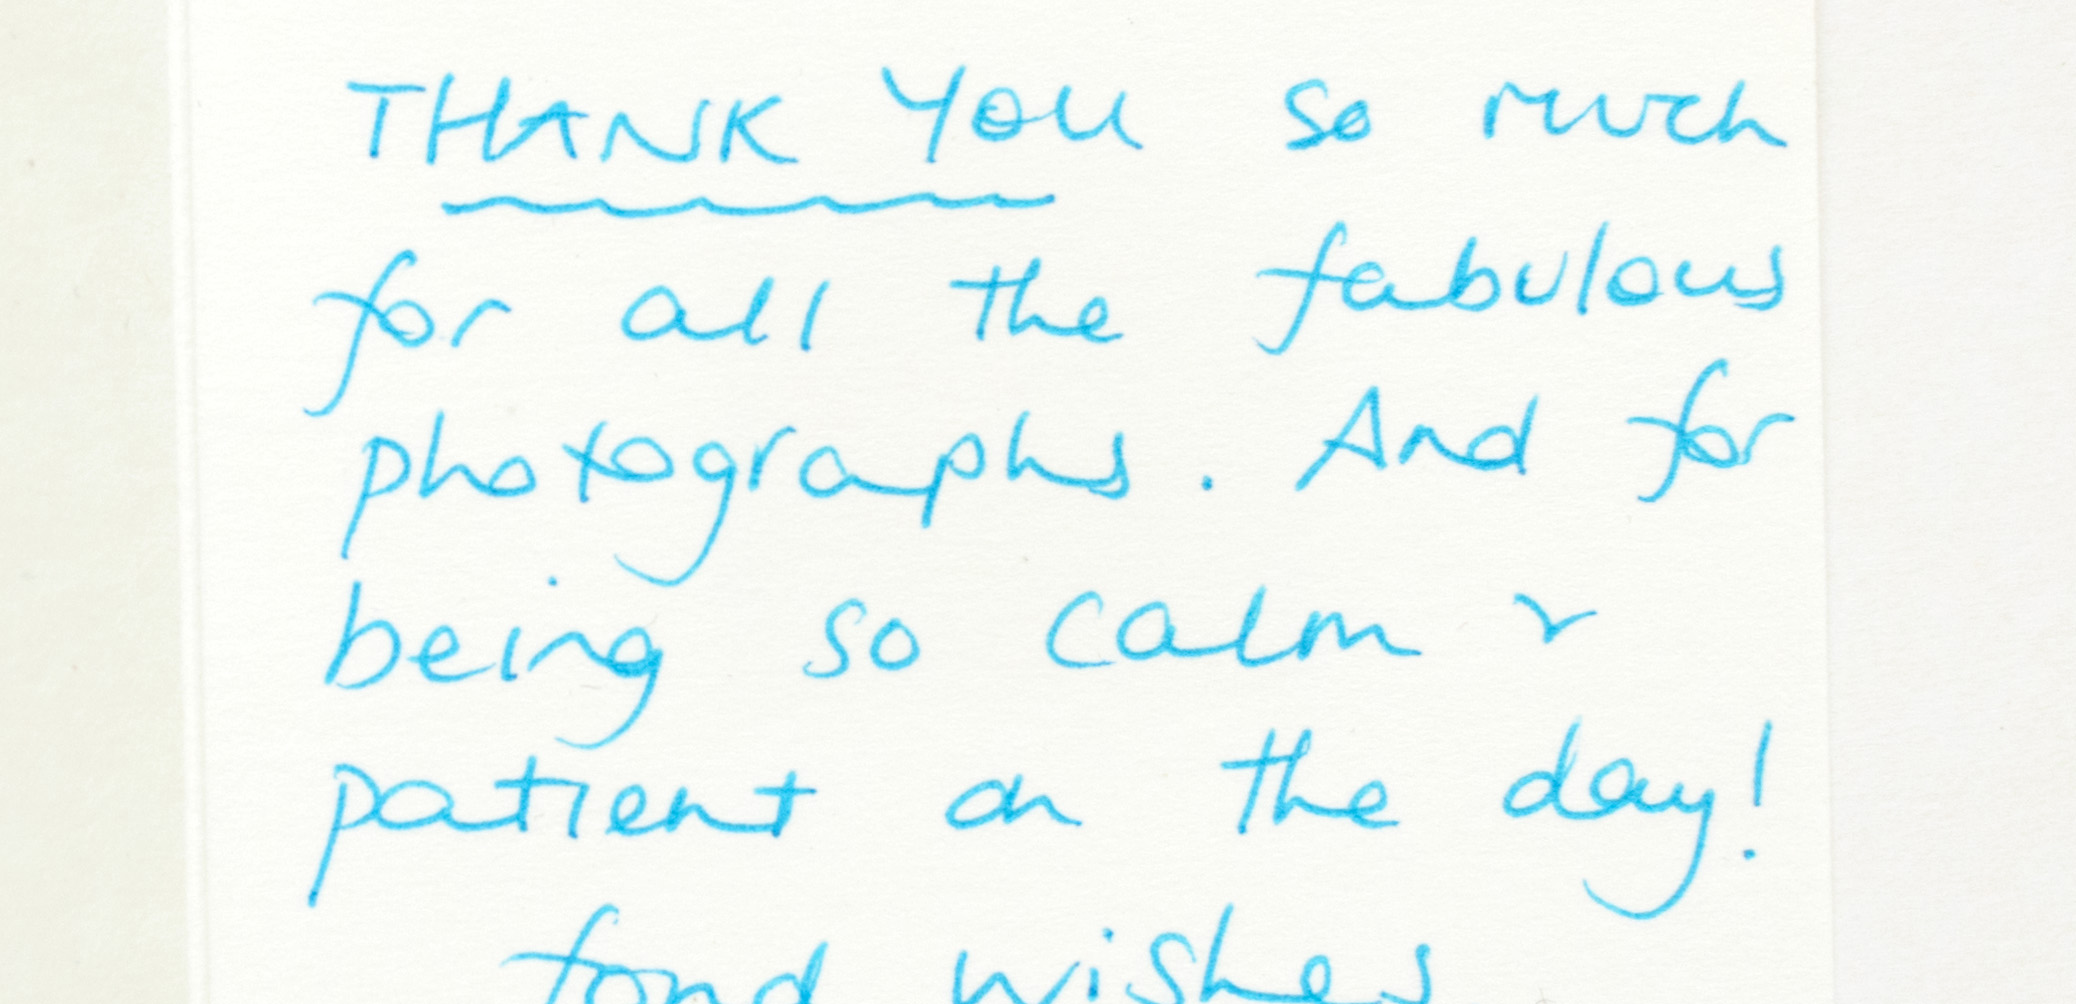 THANK YOU so much
for all the fabulous
photographs. And for
being so calm &
patient on the day!
fond wishes